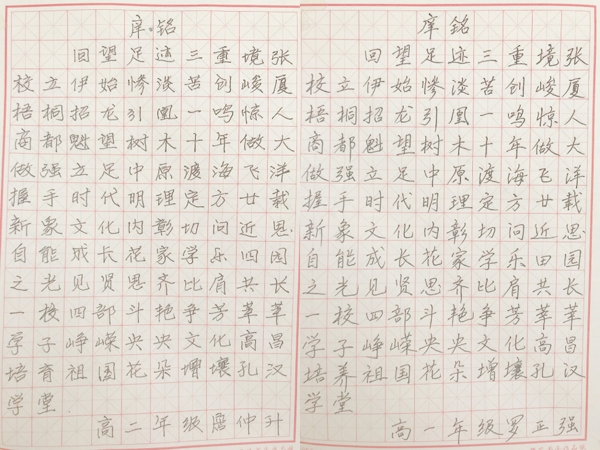 庠·铭
回望足迹三重境张
校立伊始惨淡苦创峻厦
梧桐招龙引凰一鸣惊人
商都魁望树木十年做大
做强立足中原渡海飞洋
握手时代明理定方廿载
新象文化内彰切问近思
自能成长花家学乐四园
之光见贤思齐比肩共长
一校四部斗艳争芳莘莘
学子峥嵘央央文化高昌
培育祖国花朵增壤孔汉
学堂
高二年级仲升
庠铭
回望足迹三重境张
校立伊始惨淡苦创峻厦
梧桐招龙引凰一鸣惊人
商都魁望树木十年做大
做强立足中原渡海飞洋
握手时代明理定方廿载
新象文化内彰切问近思
自能成长花家学乐田园
之光见贤思齐比肩共长
一校四部斗艳争芳莘莘
学子峥嵘央央文化高昌
培养祖国花朵增壤孔汉
学堂
高一年级罗正强